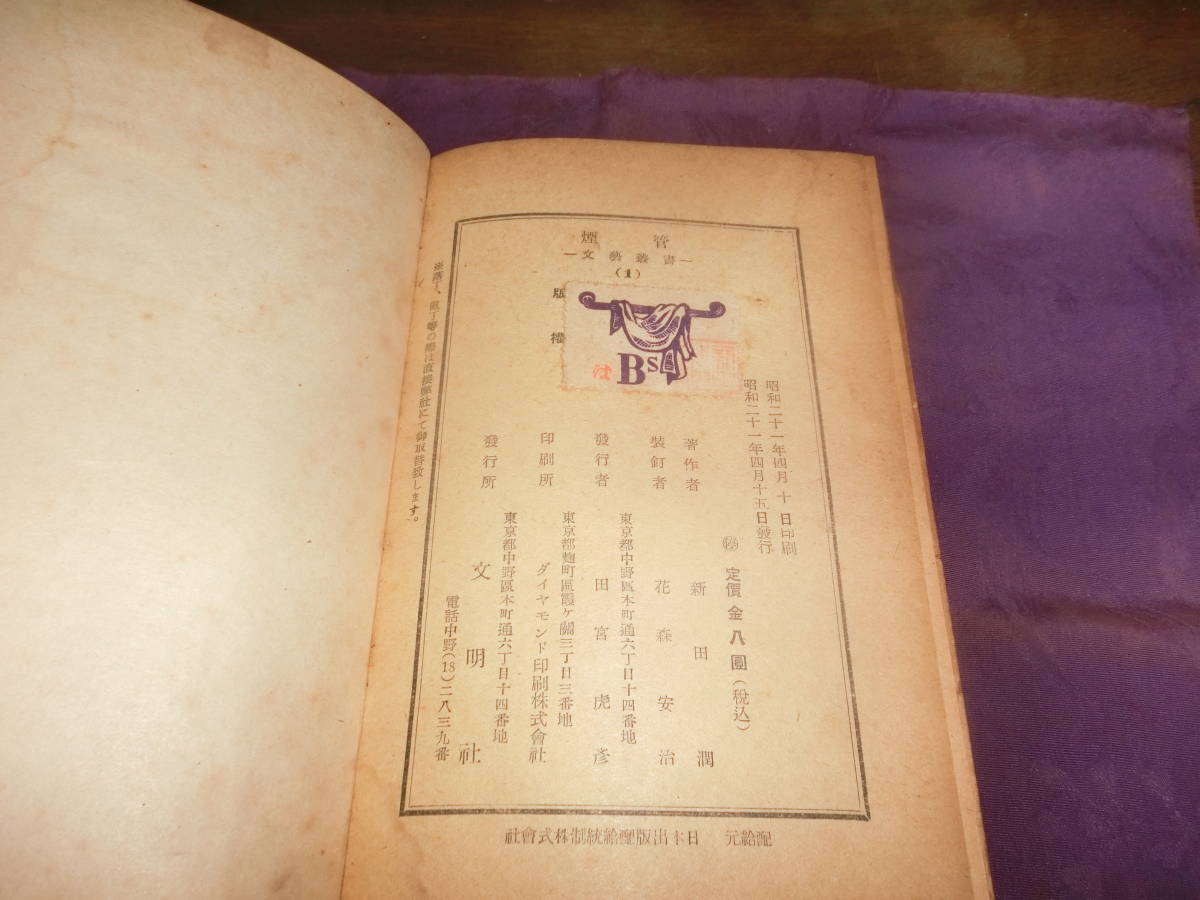 煙管
—文藝叢書—
(1)
版權
BS
社
昭和二十一年四月 十 日印刷
昭和二十一年四月十五日發行
定價金八圓(税込)
著作者 新田潤
裝釘者 花森安治
東京都中野區本町通六丁目十四番地
發行者 田宮虎彦
東京都麴町區霞ケ關三丁目三番地
印刷所 ダイヤモンド印刷株式會社
東京都中野區本町通六丁目十四番地
發行所 文明社
電話中野(18)二八三九番
は直接弊社にて御取替致します。
配給元 日本出版配給統制株式會社